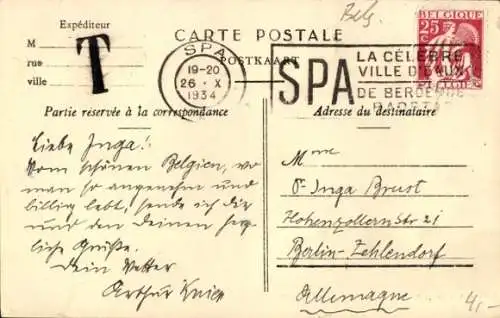 Belg.
Expéditeur
M
rue
ville
T
CARTE POSTALE
POSTKAART
SPA
19-20
26 X
1934
SPA
LA CÉLÈBRE
VILLE D'EAUX
DE BERDEMDE
BADSTAD
BELGIQUE
25 c
BELGIE
Partie réservée à la correspondance
Adresse du destinataire
Liebe Inga!
Vom schönen Belgien, wo
man so angenehm und
billig lebt, sende ich Dir
und den Deinen herz
liche Grüße.
Dein Vetter
Arthur
Mme
Inga Brust
Hohenzollern Str 21
Berlin-Zehlendorf
Allemagne
4,-